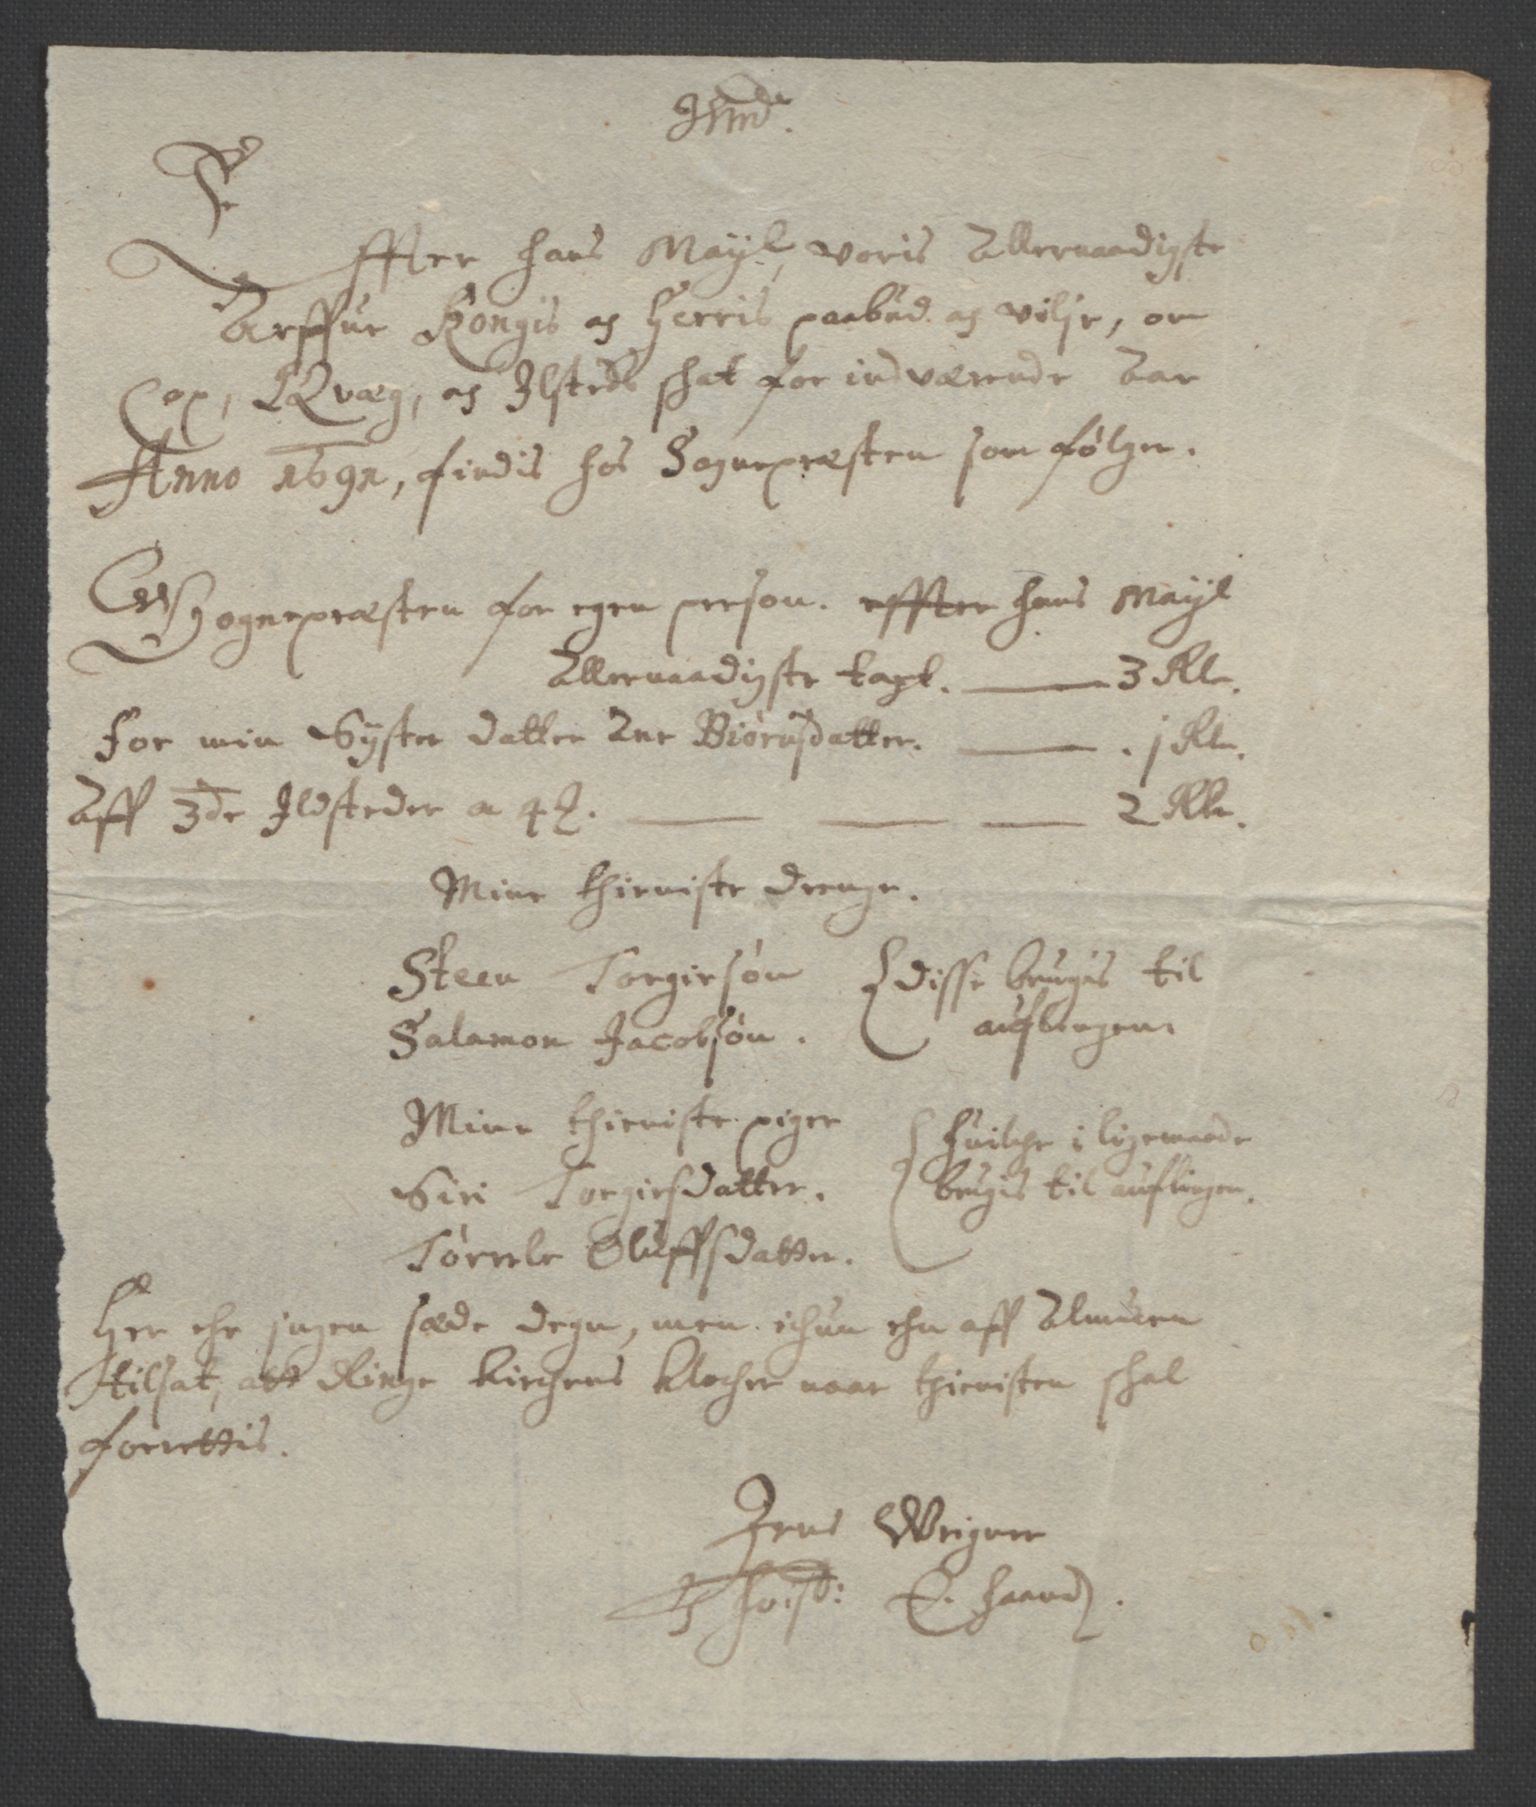 Effter hans Mayt voris Allernaadigste
Arffue Kongis og Herris paabud og vilje, om
Cop, Qvæg, og Ilsteds skat for indværende Aar
Anno 1691, findis hos Sognepræsten som følger.
Sognepræsten for egen person. effter hans Mayt
Allernaadigste taxt. 3 Rdr.
For min Syster datter Ane Biørnsdatter. 1 Rdr.
Aff 3de Ildsteder a 4 2 Rdr.
Mine thieniste drenge.
Steen Torgiersøn disse brugis til
Salamon Jacobsøn. auflingen.
Mine thieniste piger huilche i ligemaade
Siri Torgiersdatter. brugis til auflingen.
Oluffsdatter.
Her ehr ingen sæde degn, men ichun ehn aff Almuen
tilsat, att Ringe kirchens klocher naar thienisten skal
forrettis.
Jens
E. haand.